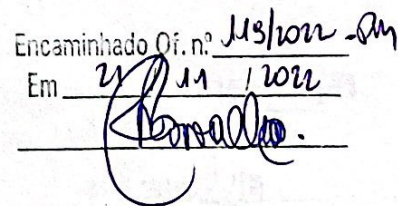 Encaminhado Of. n.º 119/2022 - PM
Em 21 / 11 / 2022